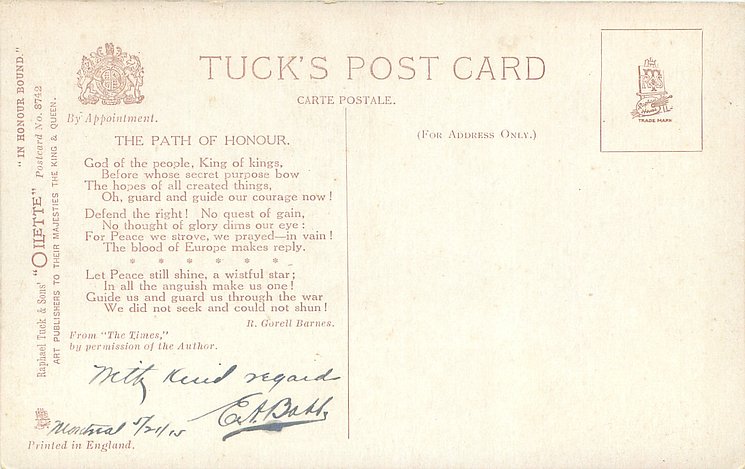 "IN HONOUR BOUND."
Raphael Tuck & Sons' "OILETTE" Postcard No. 8742
ART PUBLISHERS TO THEIR MAJESTIES THE KING & QUEEN.
By Appointment.
TUCK'S POST CARD
CARTE POSTALE.
(FOR ADDRESS ONLY.)
TRADE MARK
THE PATH OF HONOUR.
God of the people, King of kings,
Before whose secret purpose bow
The hopes of all created things,
Oh, guard and guide our courage now!
Defend the right! No quest of gain,
No thought of glory dims our eye:
For Peace we strove, we prayed—in vain!
The blood of Europe makes reply.
* * * * * *
Let Peace still shine, a wistful star;
In all the anguish make us one!
Guide us and guard us through the war
We did not seek and could not shun!
R. Gorell Barnes.
From "The Times,"
by permission of the Author.
With kind regard
E.A.
Montreal 5/21/15
Printed in England.